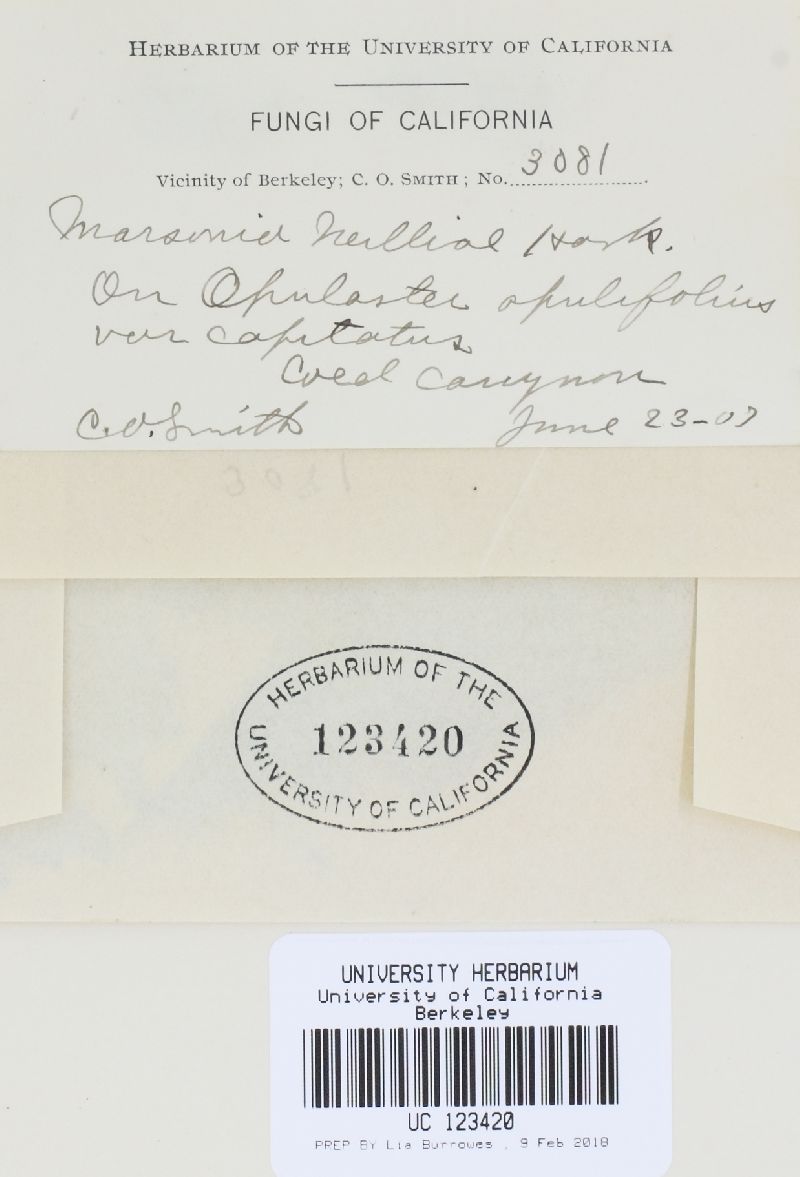 HERBARIUM OF THE UNIVERSITY OF CALIFORNIA
FUNGI OF CALIFORNIA
Vicinity of Berkeley; C. O. SMITH; No. 3081
Marsonia Neilliae Hark.
On Opulaster opulifolius
var capitatus
Coed canynon
C.O. Smith June 23-07
3081
HERBARIUM OF THE
123420
UNIVERSITY OF CALIFORNIA
UNIVERSITY HERBARIUM
University of California
Berkeley
UC 123420
PREP BY Lia Burrowes , 9 Feb 2018